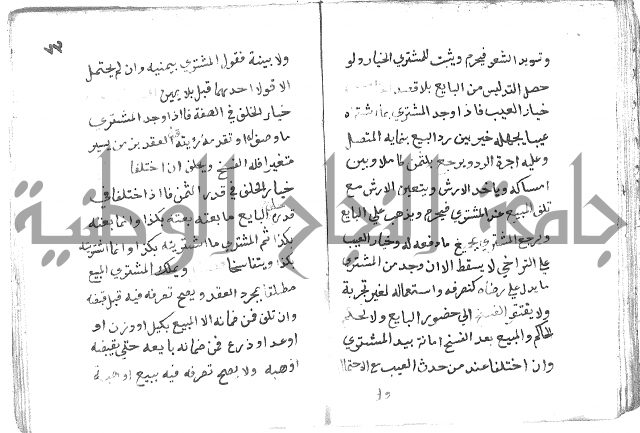 وتسويد الشعر فيحرم ويثبت للمشتري الخيار ولو
حصل التدليس من البايع بلا قصد
خيار العيب فاذا وجد المشتري بما اشتراه
عيبا يجهله خير بين رد المبيع بنمايه المتصل
وعليه اجرة الرد ويرجع بالثمن كاملا وبين
امساكه وياخذ الارش ويتعين الارش مع
تلف المبيع عند المشتري فيحرم ويذهب على البايع
ويرجع المشتري بجميع ما دفعه له وخيار العيب
على التراخي لا يسقط الا ان وجد من المشتري
ما يدل على رضاه كتصرفه واستعماله لغير تجربة
ولا يفتقر الفسخ الى حضور البايع ولا لحكم
الحاكم والمبيع بعد الفسخ امانة بيد المشتري
وان اختلفا عند من حدث العيب مع الاحتمال
ولا
٧٣
ولا بينة فقول المشتري بيمينه وان لم يحتمل
الا قول احدهما قبل بلا يمين
خيار الخلف في الصفة فاذا وجد المشتري
ما وصف له او تقدمت رؤيته العقد بزمن يسير
متغيرا فله الفسخ ويحلف ان اختلفا
خيار الخلف في قدر الثمن فاذا اختلفا في
قدره حلف البايع ما بعته بكذا وانما بعته
بكذا ثم المشتري ما اشتريته بكذا وانما اشتريته
بكذا ويتفاسخا ويملك المشتري المبيع
مطلقا بمجرد العقد ويصح تصرفه فيه قبل قبضه
وان تلف فمن ضمانه الا المبيع بكيل او وزن او
او عد او ذرع فمن ضمان بايعه حتى يقبضه
ولا يصح تصرفه فيه ببيع او هبة
جامعة النجاح الوطنية